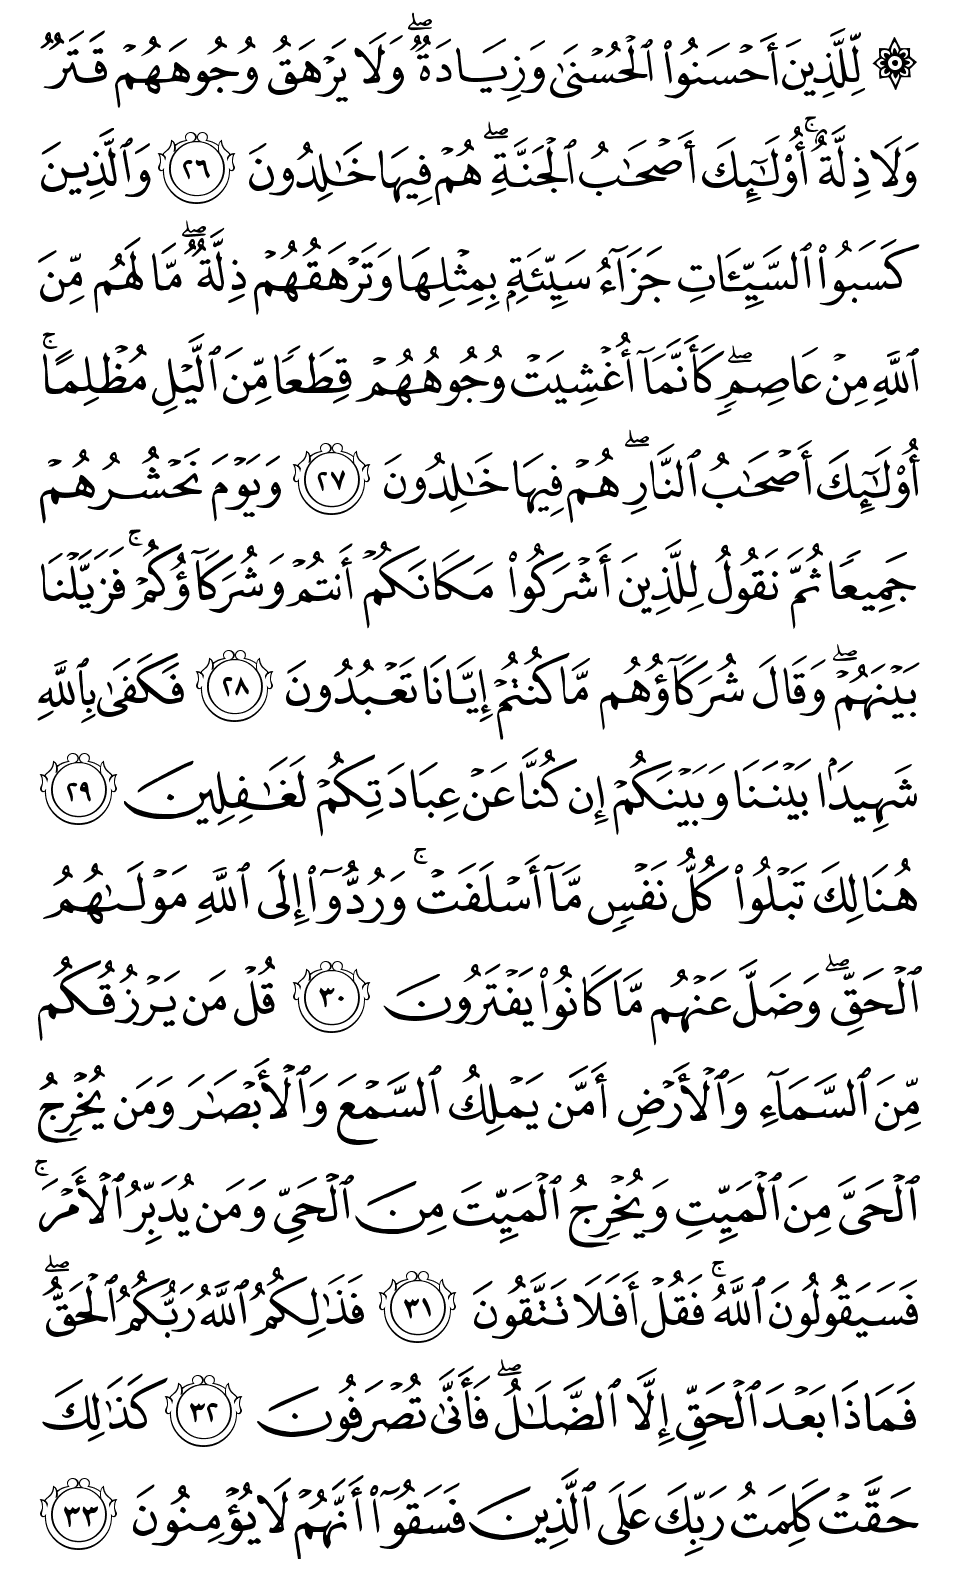 ۞ لِّلَّذِينَ أَحْسَنُوا۟ ٱلْحُسْنَىٰ وَزِيَادَةٌۖ وَلَا يَرْهَقُ وُجُوهَهُمْ قَتَرٌ
وَلَا ذِلَّةٌۚ أُو۟لَـٰٓئِكَ أَصْحَـٰبُ ٱلْجَنَّةِۖ هُمْ فِيهَا خَـٰلِدُونَ ٢٦ وَٱلَّذِينَ
كَسَبُوا۟ ٱلسَّيِّـَٔاتِ جَزَآءُ سَيِّئَةٍۭ بِمِثْلِهَا وَتَرْهَقُهُمْ ذِلَّةٌۖ مَّا لَهُم مِّنَ
ٱللَّهِ مِنْ عَاصِمٍۖ كَأَنَّمَآ أُغْشِيَتْ وُجُوهُهُمْ قِطَعًا مِّنَ ٱلَّيْلِ مُظْلِمًاۚ
أُو۟لَـٰٓئِكَ أَصْحَـٰبُ ٱلنَّارِۖ هُمْ فِيهَا خَـٰلِدُونَ ٢٧ وَيَوْمَ نَحْشُرُهُمْ
جَمِيعًا ثُمَّ نَقُولُ لِلَّذِينَ أَشْرَكُوا۟ مَكَانَكُمْ أَنتُمْ وَشُرَكَآؤُكُمْۚ فَزَيَّلْنَا
بَيْنَهُمْۖ وَقَالَ شُرَكَآؤُهُم مَّا كُنتُمْ إِيَّانَا تَعْبُدُونَ ٢٨ فَكَفَىٰ بِٱللَّهِ
شَهِيدًۢا بَيْنَنَا وَبَيْنَكُمْ إِن كُنَّا عَنْ عِبَادَتِكُمْ لَغَـٰفِلِينَ ٢٩
هُنَالِكَ تَبْلُوا۟ كُلُّ نَفْسٍ مَّآ أَسْلَفَتْۚ وَرُدُّوٓا۟ إِلَى ٱللَّهِ مَوْلَىٰهُمُ
ٱلْحَقِّۖ وَضَلَّ عَنْهُم مَّا كَانُوا۟ يَفْتَرُونَ ٣٠ قُلْ مَن يَرْزُقُكُم
مِّنَ ٱلسَّمَآءِ وَٱلْأَرْضِ أَمَّن يَمْلِكُ ٱلسَّمْعَ وَٱلْأَبْصَـٰرَ وَمَن يُخْرِجُ
ٱلْحَىَّ مِنَ ٱلْمَيِّتِ وَيُخْرِجُ ٱلْمَيِّتَ مِنَ ٱلْحَىِّ وَمَن يُدَبِّرُ ٱلْأَمْرَۚ
فَسَيَقُولُونَ ٱللَّهُۚ فَقُلْ أَفَلَا تَتَّقُونَ ٣١ فَذَٰلِكُمُ ٱللَّهُ رَبُّكُمُ ٱلْحَقُّۖ
فَمَاذَا بَعْدَ ٱلْحَقِّ إِلَّا ٱلضَّلَـٰلُۖ فَأَنَّىٰ تُصْرَفُونَ ٣٢ كَذَٰلِكَ
حَقَّتْ كَلِمَتُ رَبِّكَ عَلَى ٱلَّذِينَ فَسَقُوٓا۟ أَنَّهُمْ لَا يُؤْمِنُونَ ٣٣